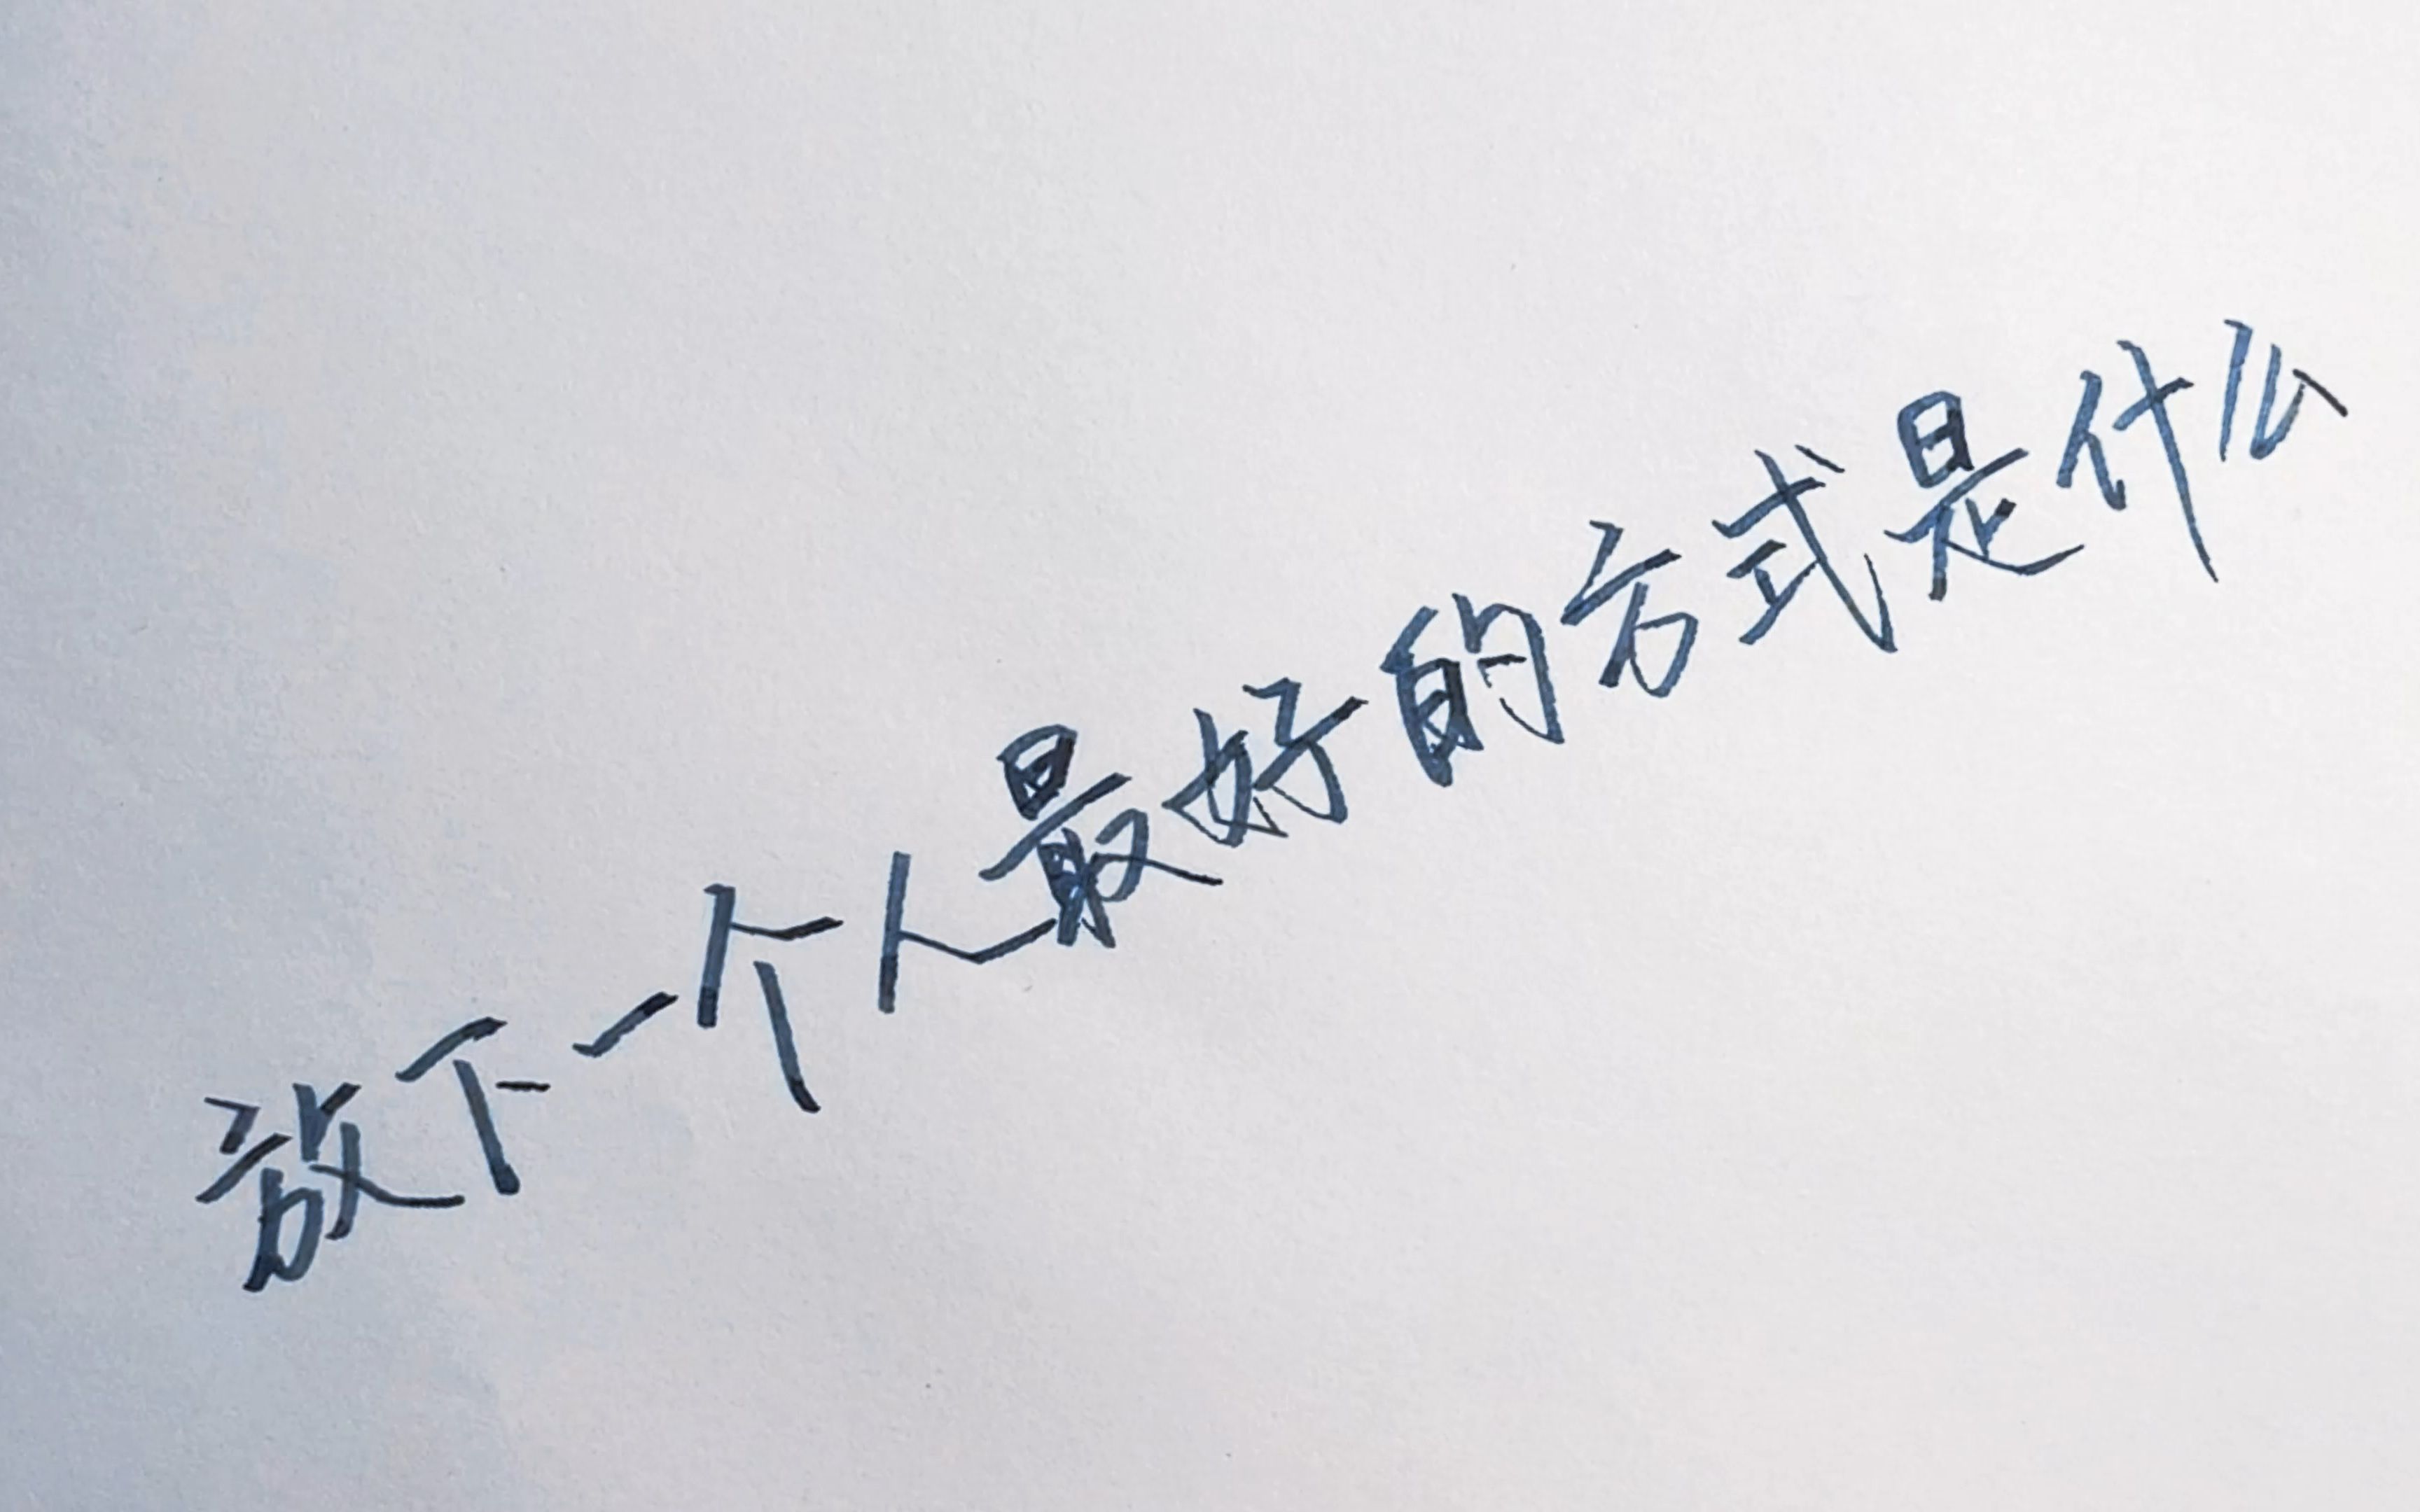 放下一个人最好的方式是什么